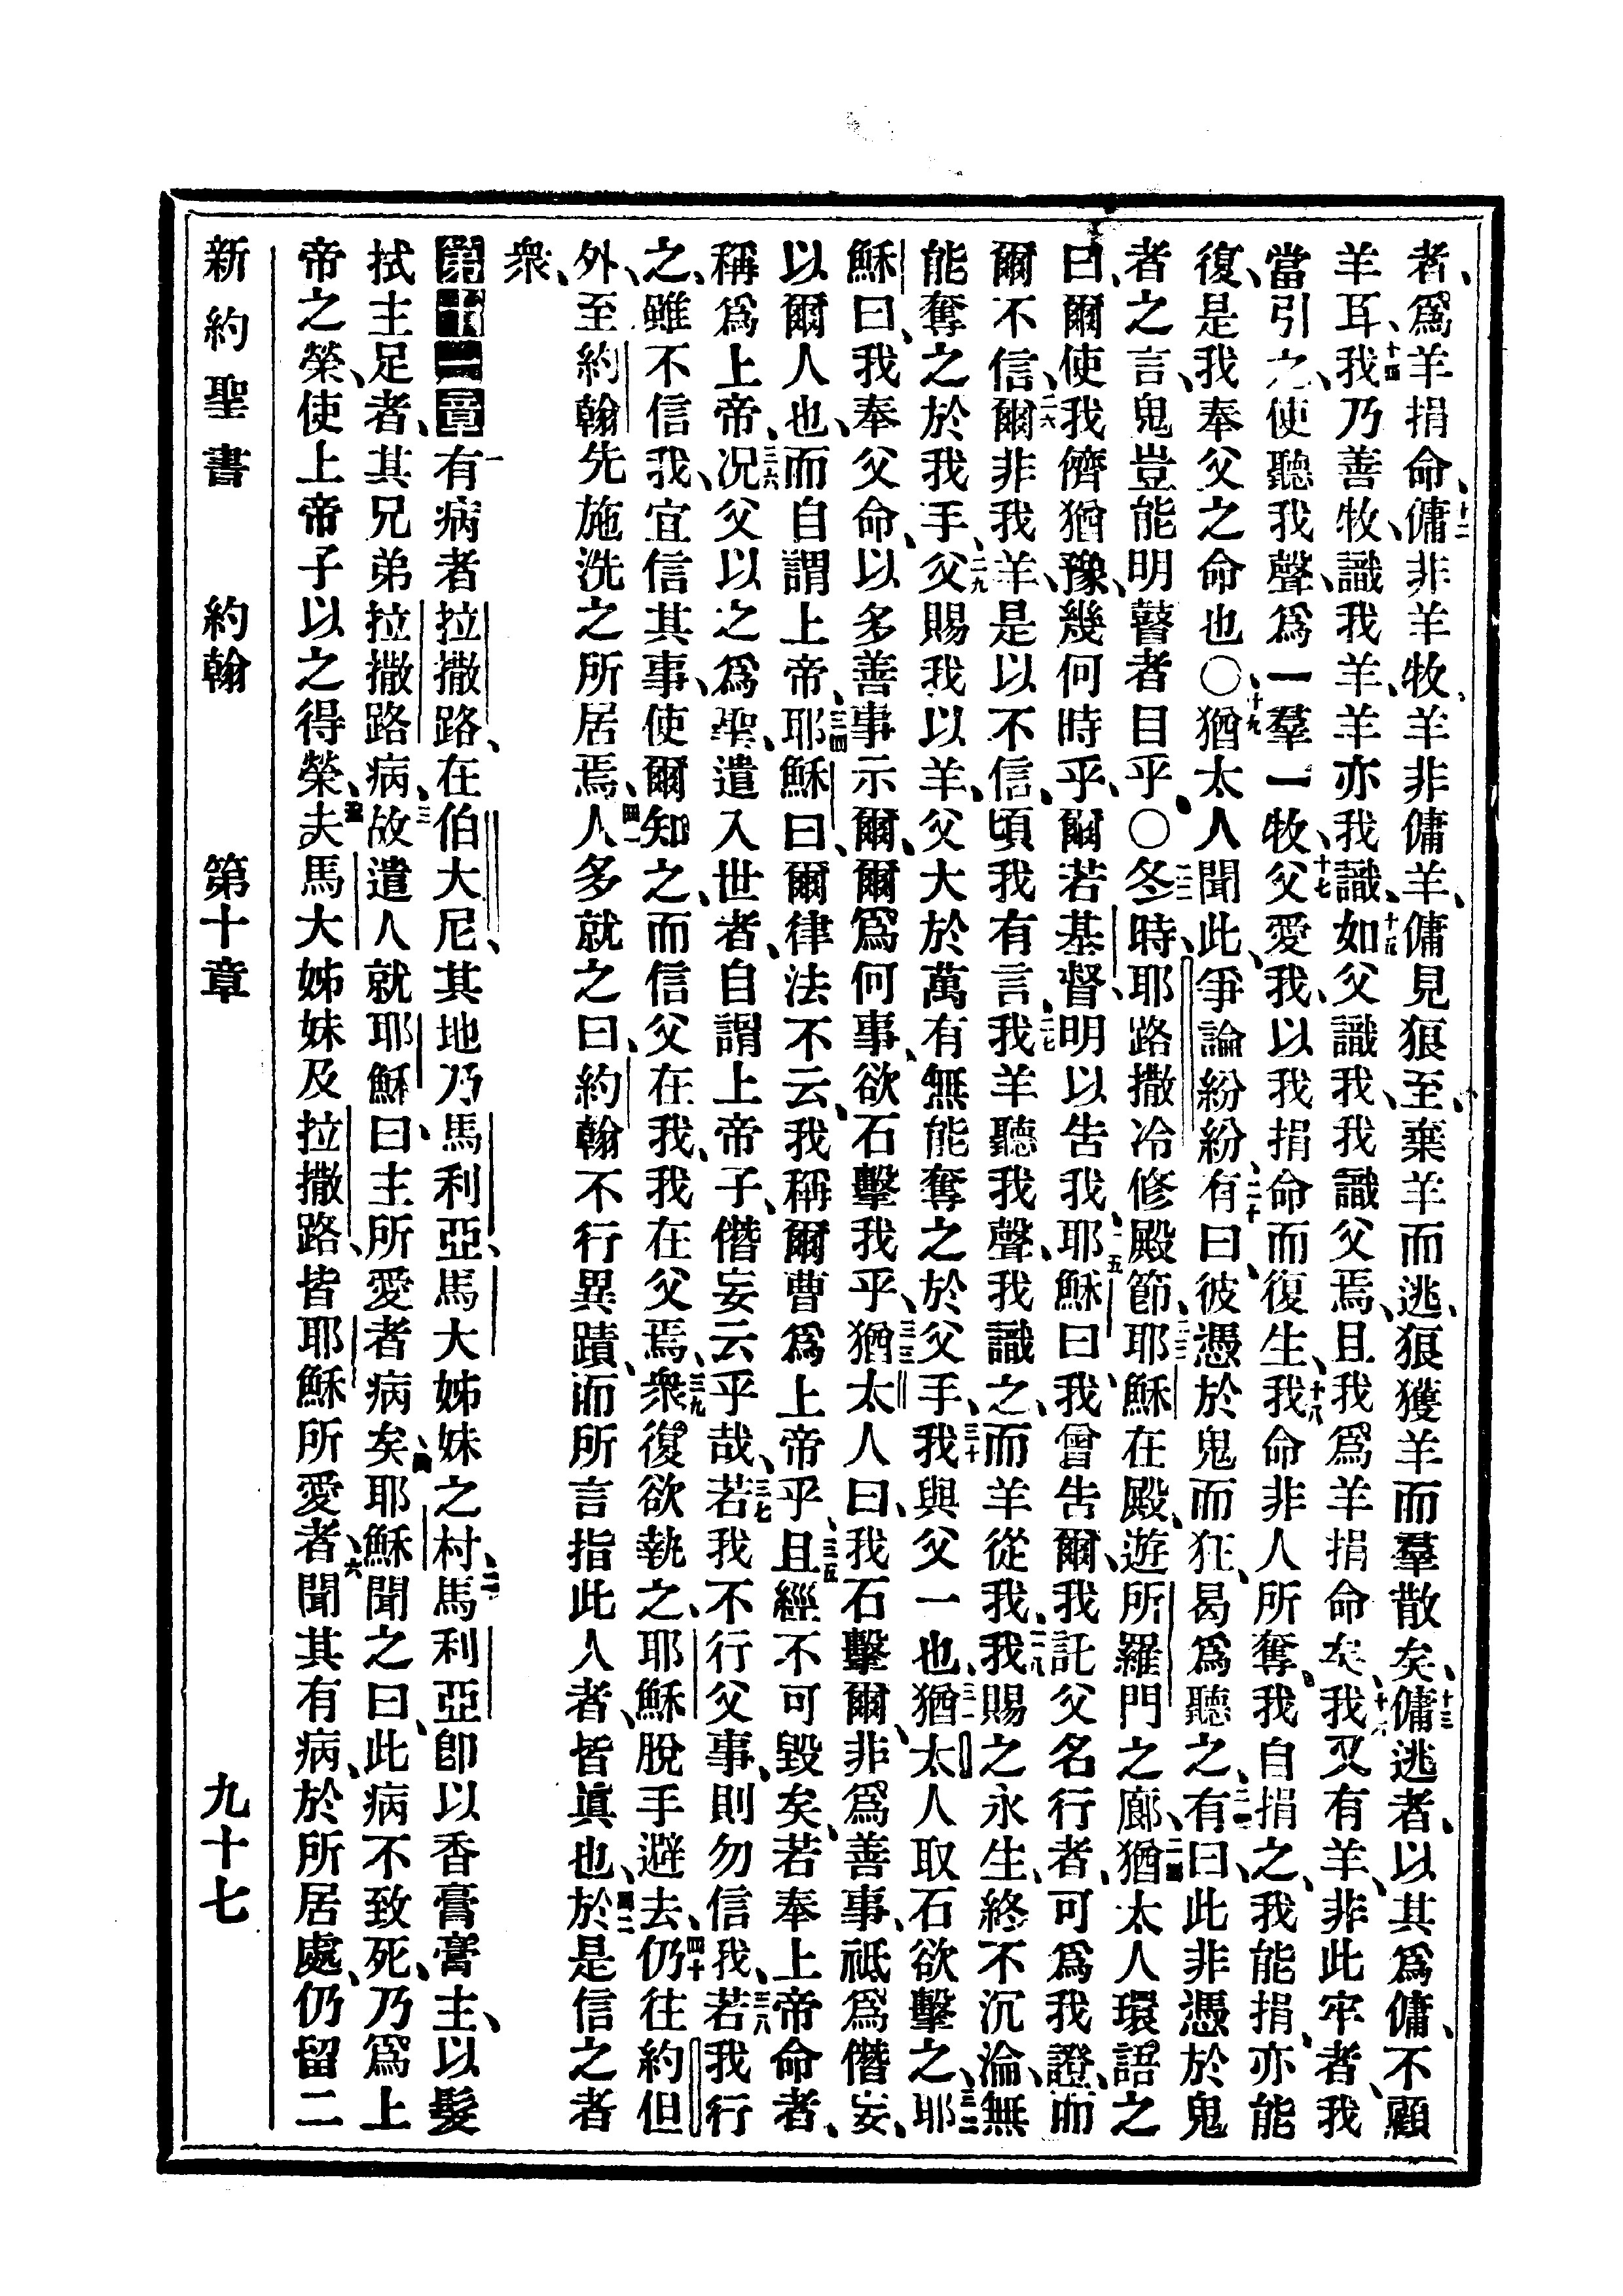 者、爲羊捐命、十二傭非羊牧、羊非傭羊、傭見狼至、棄羊而逃、狼獲羊而羣散矣、十三傭逃者、以其爲傭、不顧
羊耳、十四我乃善牧、識我羊、羊亦我識、十五如父識我、我識父焉、且我爲羊捐命矣、十六我又有羊、非此牢者、我
當引之、使聽我聲、爲一羣一牧、十七父愛我、以我捐命而復生、十八我命非人所奪、我自捐之、我能捐、亦能
復、是我奉父之命也、〇十九猶太人聞此、爭論紛紛、二十有曰、彼憑於鬼而狂、曷爲聽之、二一有曰、此非憑於鬼
者之言、鬼豈能明瞽者目乎、〇二二冬時、耶路撒冷修殿節、二三耶穌在殿、遊所羅門之廊、二四猶太人環語之
曰、爾使我儕猶豫、幾何時乎、爾若基督、明以告我、二五耶穌曰、我曾告爾、我託父名行者、可爲我證、而
爾不信、二六爾非我羊、是以不信、頃我有言、二七我羊聽我聲、我識之、而羊從我、二八我賜之永生、終不沉淪、無
能奪之於我手、二九父賜我以羊、父大於萬有、無能奪之於父手、三十我與父一也、三一猶太人取石欲擊之、三二耶
穌曰、我奉父命、以多善事示爾、爾爲何事、欲石擊我乎、三三猶太人曰、我石擊爾、非爲善事、祇爲僭妄、
以爾人也、而自謂上帝、三四耶穌曰、爾律法不云、我稱爾曹爲上帝乎、三五且經不可毀矣、若奉上帝命者、
稱爲上帝、三六况父以之爲聖、遣入世者、自謂上帝子、僭妄云乎哉、三七若我不行父事、則勿信我、三八若我行
之、雖不信我、宜信其事、使爾知之、而信父在我、我在父焉、三九衆復欲執之、耶穌脫手避去、四十仍往約但
外、至約翰先施洗之所居焉、四一人多就之曰、約翰不行異蹟、而所言指此人者、皆眞也、四二於是信之者
衆、
第十一章一有病者拉撒路、在伯大尼、其地乃馬利亞、馬大姊妹之村、二馬利亞卽以香膏膏主、以髮
拭主足者、其兄弟拉撒路病、三故遣人就耶穌曰、主所愛者病矣、四耶穌聞之曰、此病不致死、乃爲上
帝之榮、使上帝子以之得榮、五夫馬大姊妹及拉撒路、皆耶穌所愛者、六聞其有病、於所居處、仍留二
新約聖書 約翰 第十章 九十七